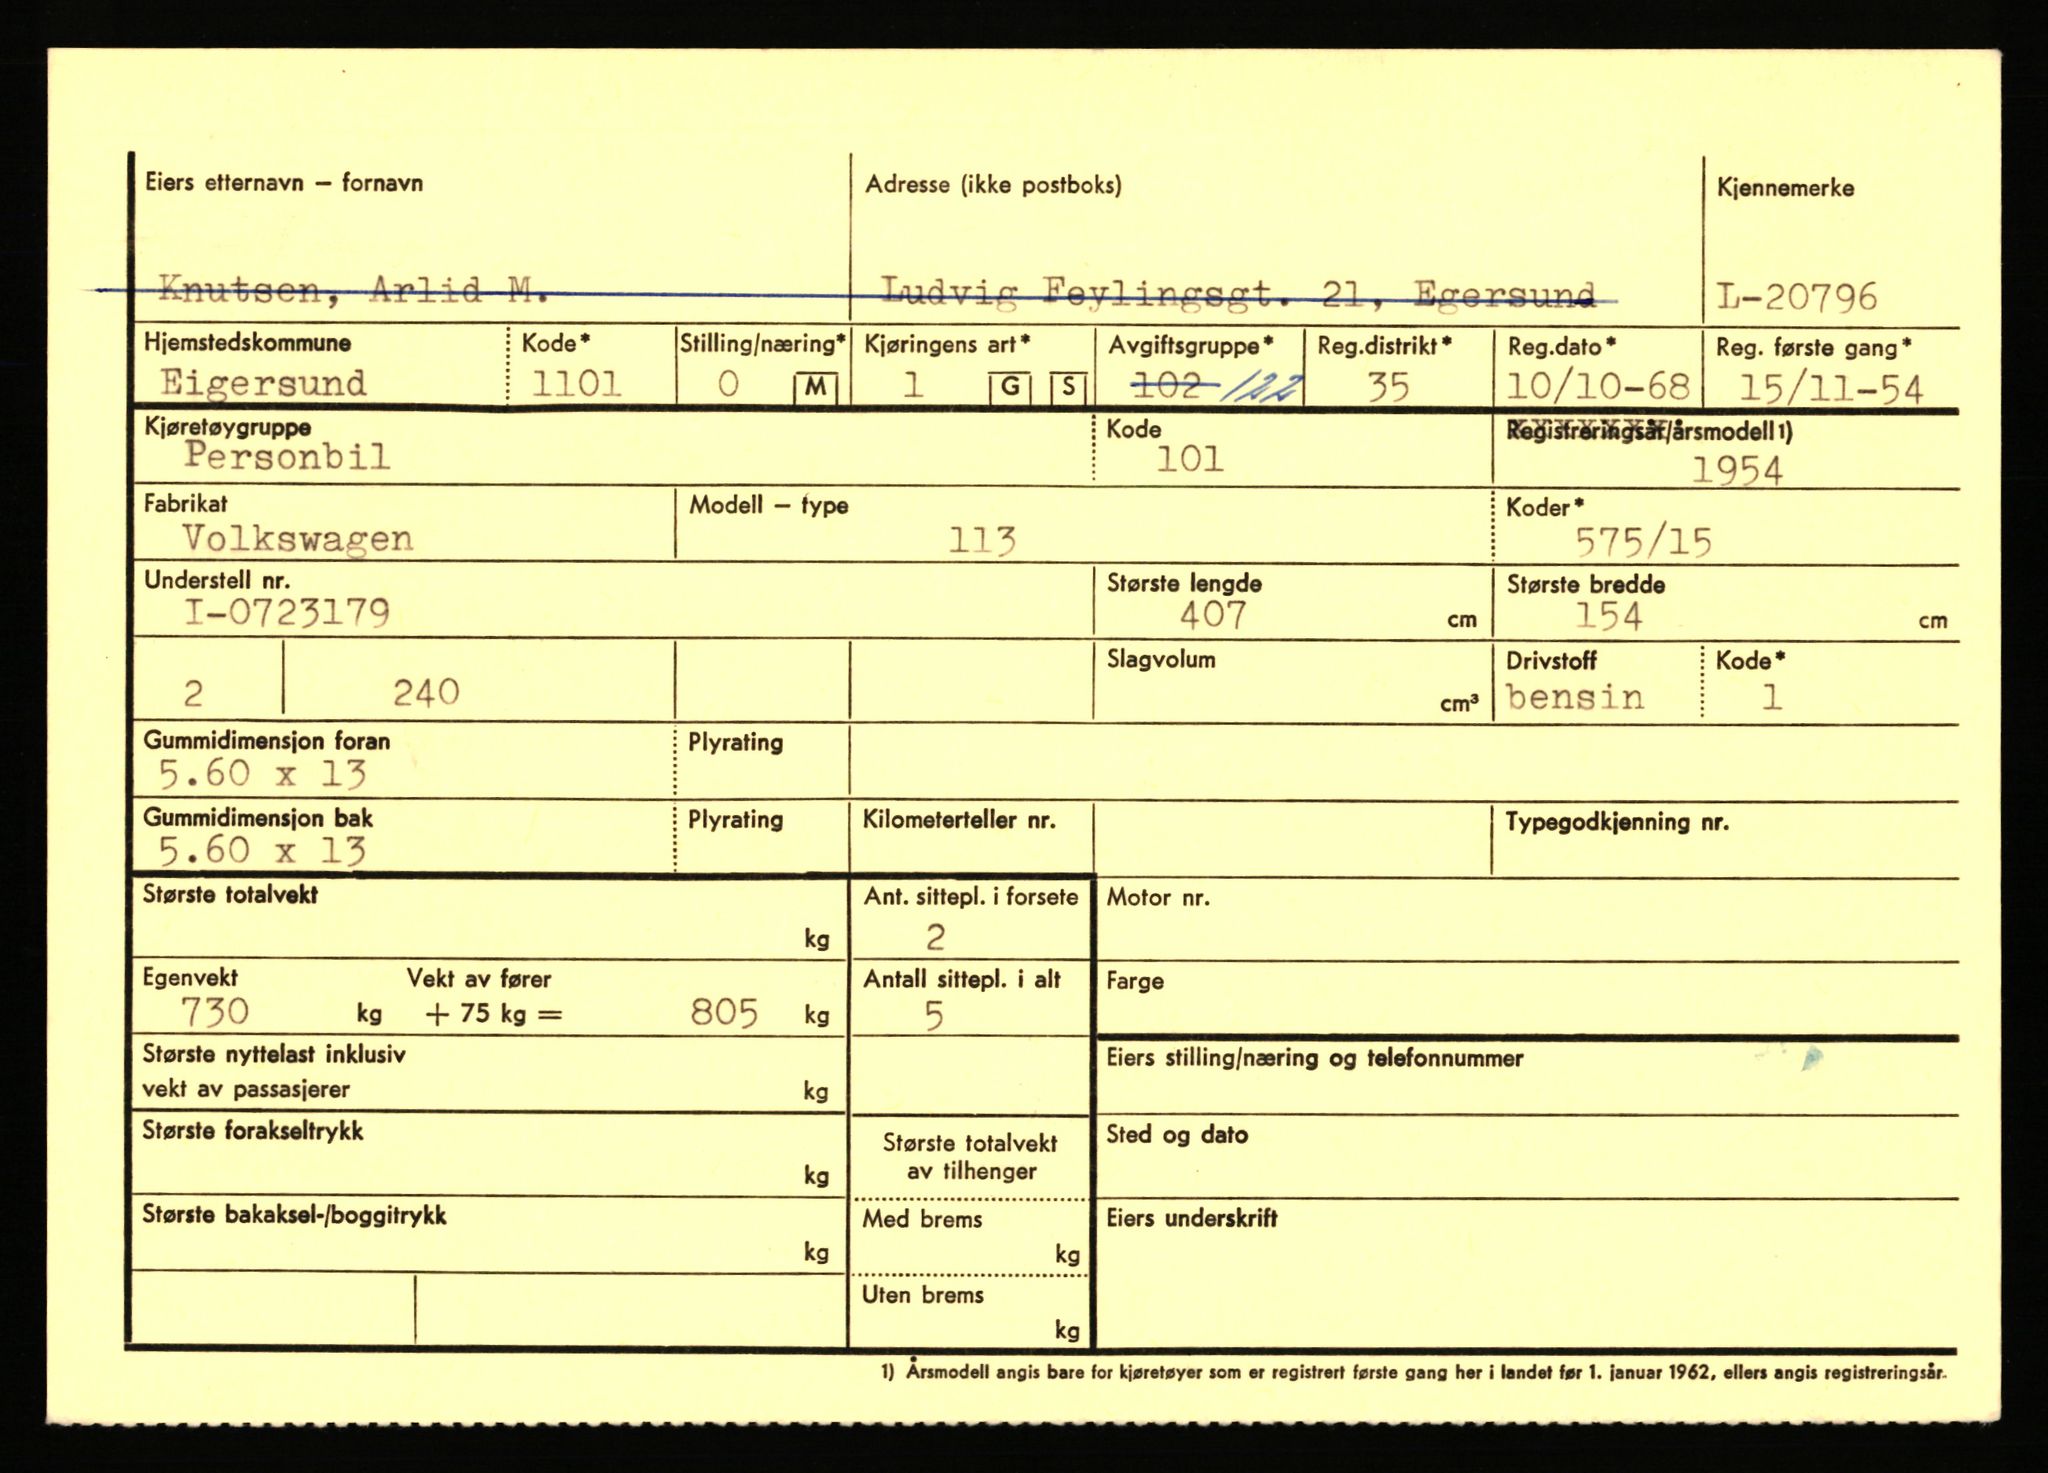 Eiers etternavn – fornavn Adresse (ikke postboks) Kjennemerke
Knutsen, Arlid M. Ludvig Feylingsgt. 21, Egersund L-20796
Hjemstedskommune Kode* Stilling/næring* Kjøringens art* Avgiftsgruppe* Reg.distrikt* Reg.dato* Reg. første gang*
Eigersund 1101 0 M 1 G S 102 122 35 10/10-68 15/11-54
Kjøretøygruppe Kode Registreringsår/årsmodell 1)
Personbil 101 1954
Fabrikat Modell – type Koder*
Volkswagen 113 575/15
Understell nr. Største lengde Største bredde
I-0723179 407 cm 154 cm
Slagvolum Drivstoff Kode*
2 240 cm³ bensin 1
Gummidimensjon foran Plyrating
5.60 x 13
Gummidimensjon bak Plyrating Kilometerteller nr. Typegodkjenning nr.
5.60 x 13
Største totalvekt Ant. sittepl. i forsete Motor nr.
kg 2
Egenvekt Vekt av fører Antall sittepl. i alt Farge
730 kg + 75 kg = 805 kg 5
Største nyttelast inklusiv Eiers stilling/næring og telefonnummer
vekt av passasjerer kg
Største forakseltrykk Største totalvekt Sted og dato
kg av tilhenger
Største bakaksel-/boggitrykk Med brems Eiers underskrift
kg kg
Uten brems
kg
1) Årsmodell angis bare for kjøretøyer som er registrert første gang her i landet før 1. januar 1962, ellers angis registreringsår.